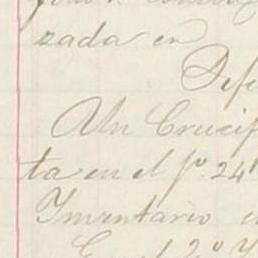 zada en
Un Crucif
ta en el fº. 24
Inventario
En el 2º